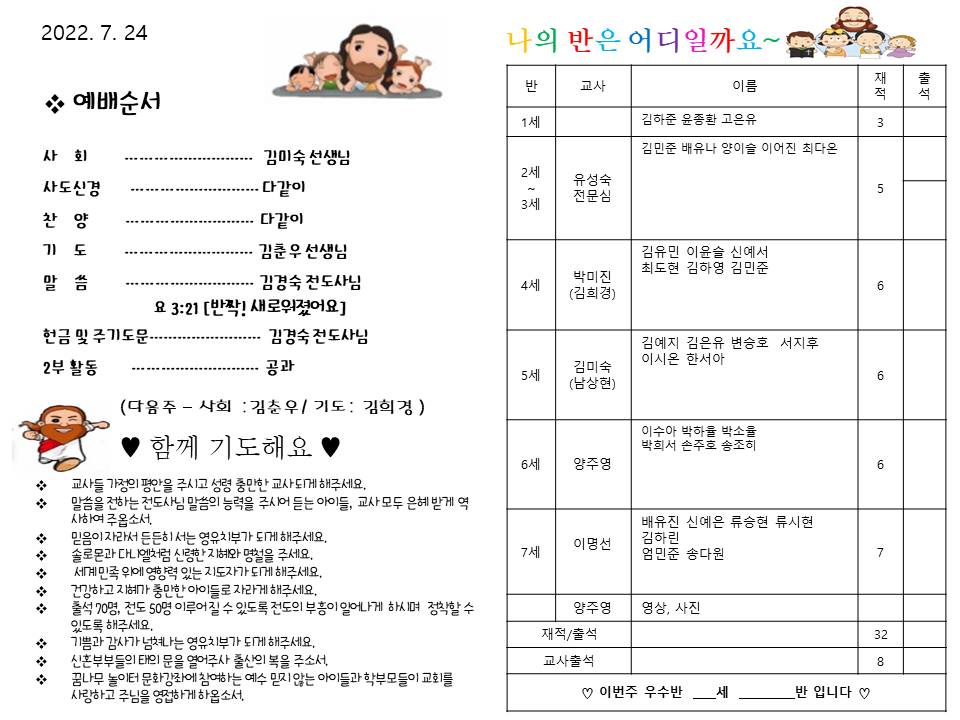 2022. 7. 24
❖ 예배순서
사 회 --------------------------- 김미숙 선생님
사도신경 --------------------------- 다같이
찬 양 --------------------------- 다같이
기 도 --------------------------- 김춘우 선생님
말 씀 --------------------------- 김경숙 전도사님
요 3:21 [반짝! 새로워졌어요]
헌금 및 주기도문------------------------ 김경숙 전도사님
2부 활동 --------------------------- 공과
(다음주 – 사회 :김춘우/ 기도: 김희경 )
♥ 함께 기도해요 ♥
❖ 교사들 가정의 평안을 주시고 성령 충만한 교사 되게 해주세요.
❖ 말씀을 전하는 전도사님 말씀의 능력을 주시어 듣는 아이들, 교사 모두 은혜 받게 역
사하여 주옵소서.
❖ 믿음이 자라서 든든히 서는 영유치부가 되게 해주세요.
❖ 솔로몬과 다니엘처럼 신령한 지혜와 명철을 주세요.
❖ 세계 민족 위에 영향력 있는 지도자가 되게 해주세요.
❖ 건강하고 지혜가 충만한 아이들로 자라게 해주세요.
❖ 출석 70명, 전도 50명 이루어 질 수 있도록 전도의 부흥이 일어나게 하시며 정착할 수
있도록 해주세요.
❖ 기쁨과 감사가 넘쳐나는 영유치부가 되게 해주세요.
❖ 신혼부부들의 태의 문을 열어주사 출산의 복을 주소서.
❖ 꿈나무 놀이터 문화강좌에 참여하는 예수 믿지 않는 아이들과 학부모들이 교회를
사랑하고 주님을 영접하게 하옵소서.
나의 반은 어디일까요~
반 교사 이름 재적 출석
1세 김하준 윤종환 고은유 3
2세 ~ 3세 유성숙 전문심 김민준 배유나 양이슬 이어진 최다온 5
4세 박미진 (김희경) 김유민 이윤슬 신예서
최도현 김하영 김민준 6
5세 김미숙 (남상현) 김예지 김은유 변승호 서지후
이시온 한서아 6
6세 양주영 이수아 박하율 박소율
박희서 손주호 송조히 6
7세 이명선 배유진 신예은 류승현 류시현
김하린
엄민준 송다원 7
양주영 영상, 사진
재적/출석 32
교사출석 8
♡ 이번주 우수반 ___세 ________반 입니다 ♡